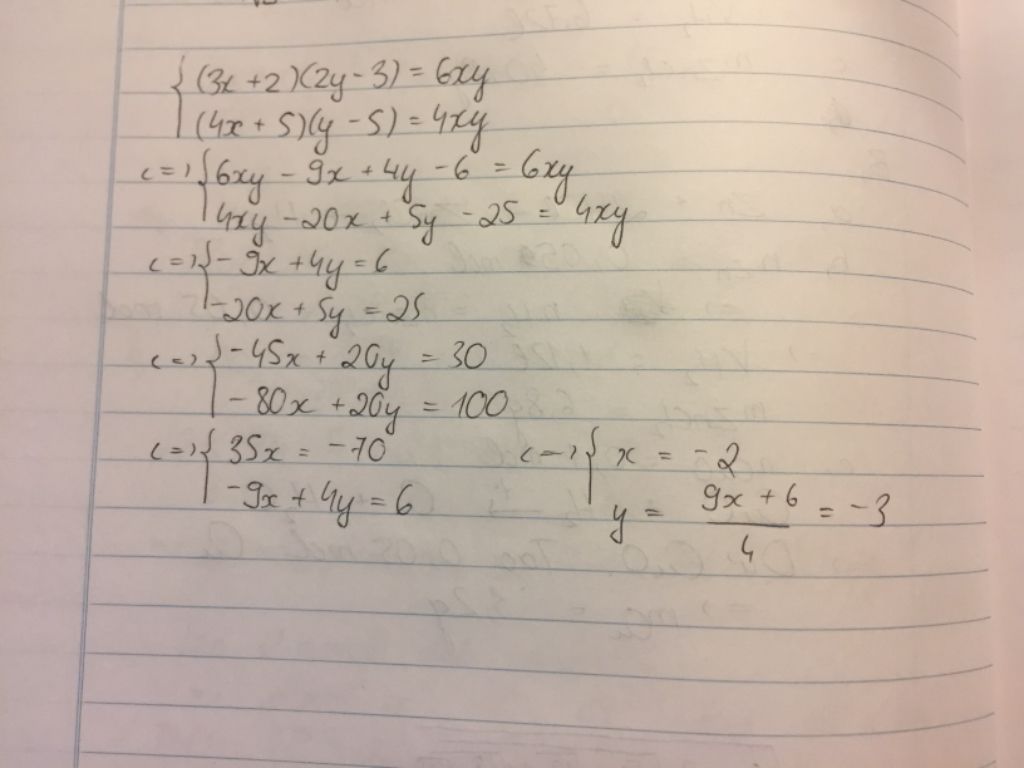 (3x+2)(2y-3) = 6xy
(4x+5)(y-5) = 4xy
<=> 6xy - 9x + 4y - 6 = 6xy
4xy - 20x + 5y - 25 = 4xy
<=> - 9x + 4y = 6
-20x + 5y = 25
<=> -45x + 20y = 30
- 80x + 20y = 100
<=> 35x = -70
-9x + 4y = 6
<=> x = -2
y = (9x + 6)/4 = -3